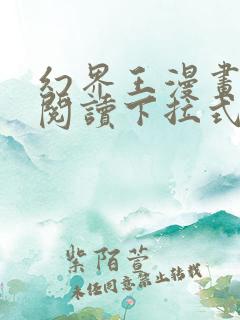 幻界王漫畫
閱讀下拉式
紫陌萱
未經同意禁止轉載